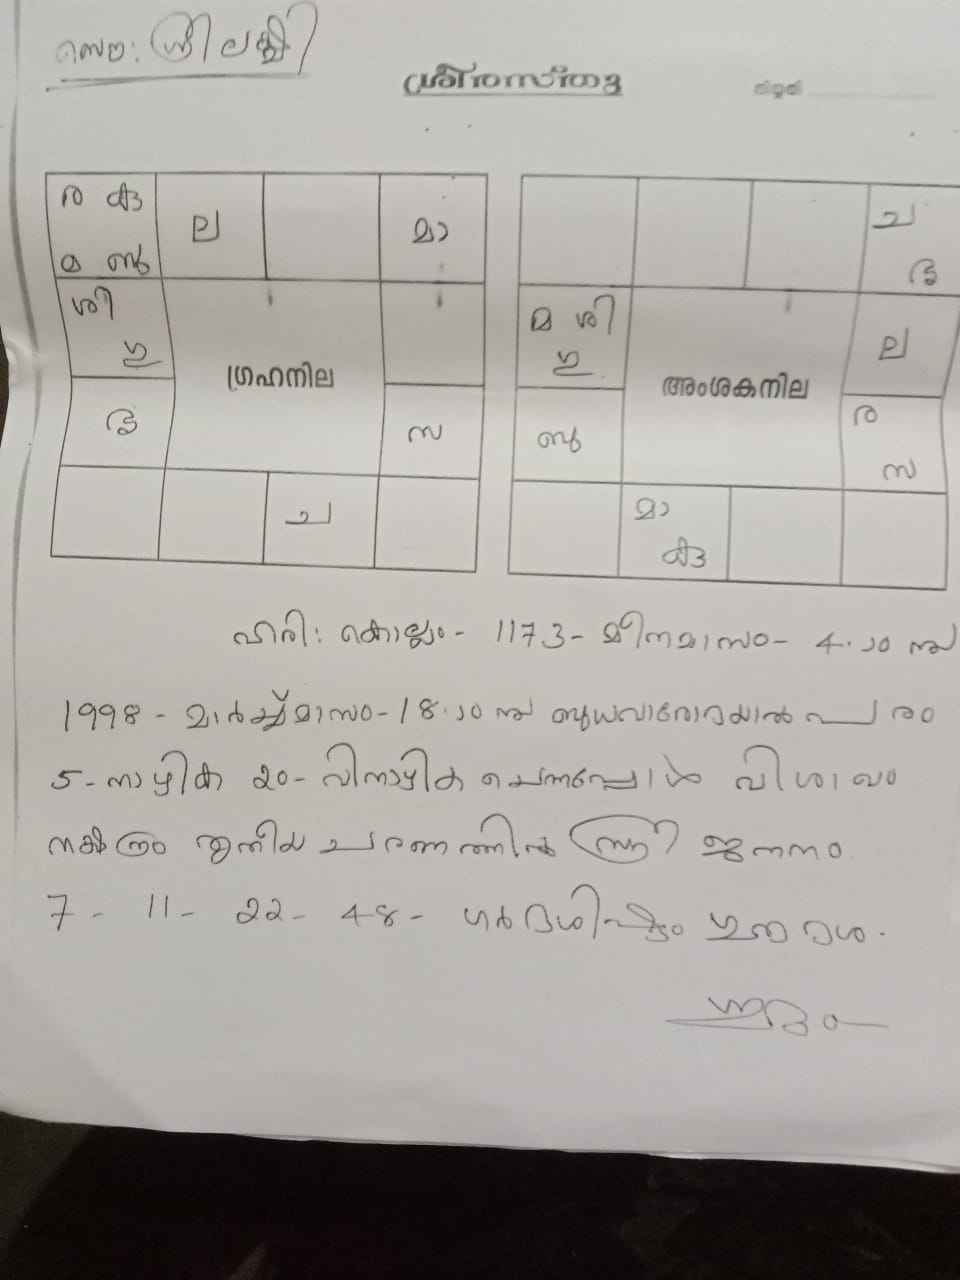 സൌ: ശ്രീലക്ഷ്മി
ശ്രീരസ്തു
തിയ്യതി
ര കു ല മാ
മ ബു
ശി
ഗു
ഗ്രഹനില
ശു
സ
ച
ച
ശു
മ ശി
ഗു
ല
അംശകനില
ബു
ര
സ
മാ
കു
ഹരി: കൊല്ലം - 1173 - മീനമാസം - 4.ാം ന്
1998 - മാർച്ച്മാസം - 18.ാം ന് ബുധവാരോദയാൽ പരം
5 - നാഴിക 20 - വിനാഴിക ചെന്നപ്പോൾ വിശാഖം
നക്ഷത്രം തൃതീയ ചരണത്തിൽ സ്ത്രീ ജനനം.
7 - 11 - 22 - 48 - ഗർഭശിഷ്ടം ഗുരു ദശ.
ശുഭം